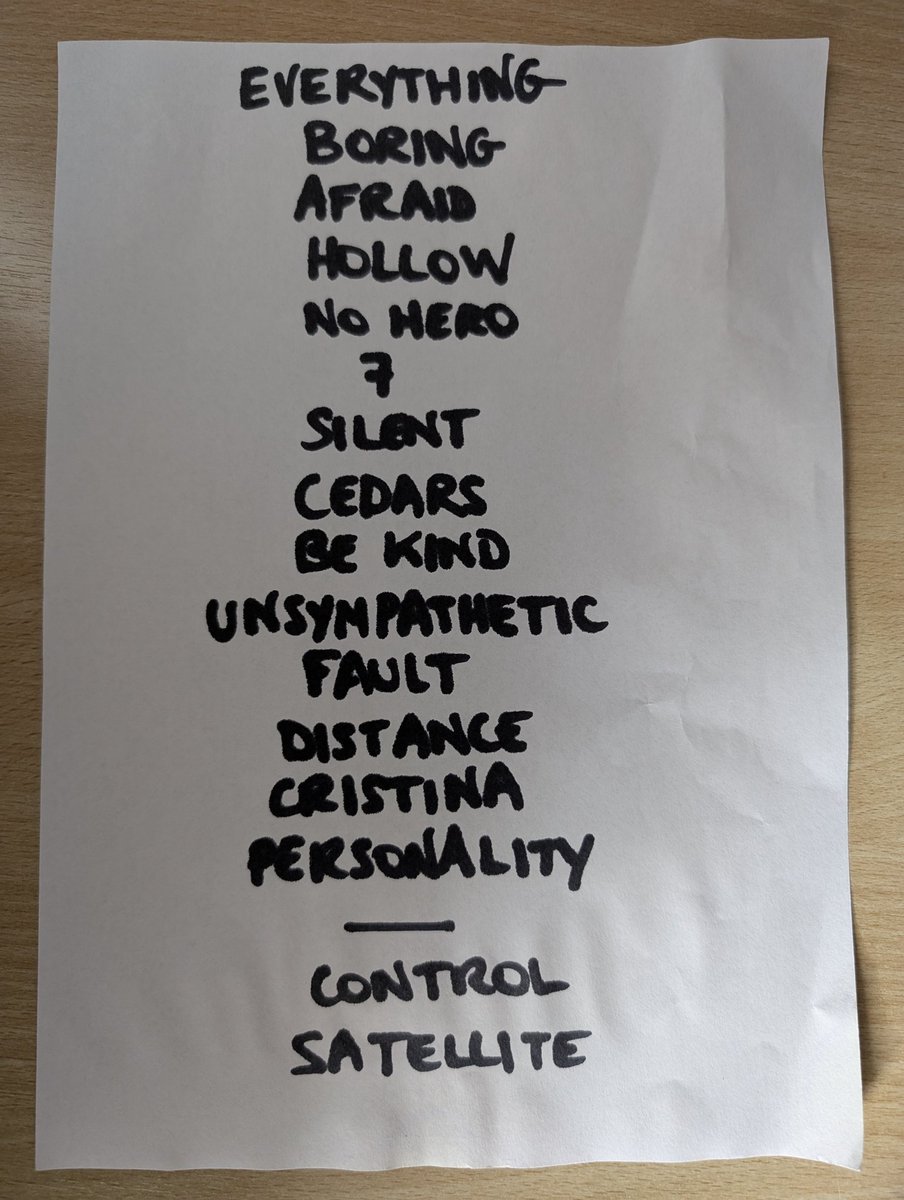 EVERYTHING
BORING
AFRAID
HOLLOW
NO HERO
7
SILENT
CEDARS
BE KIND
UNSYMPATHETIC
FAULT
DISTANCE
CRISTINA
PERSONALITY
—
CONTROL
SATELLITE